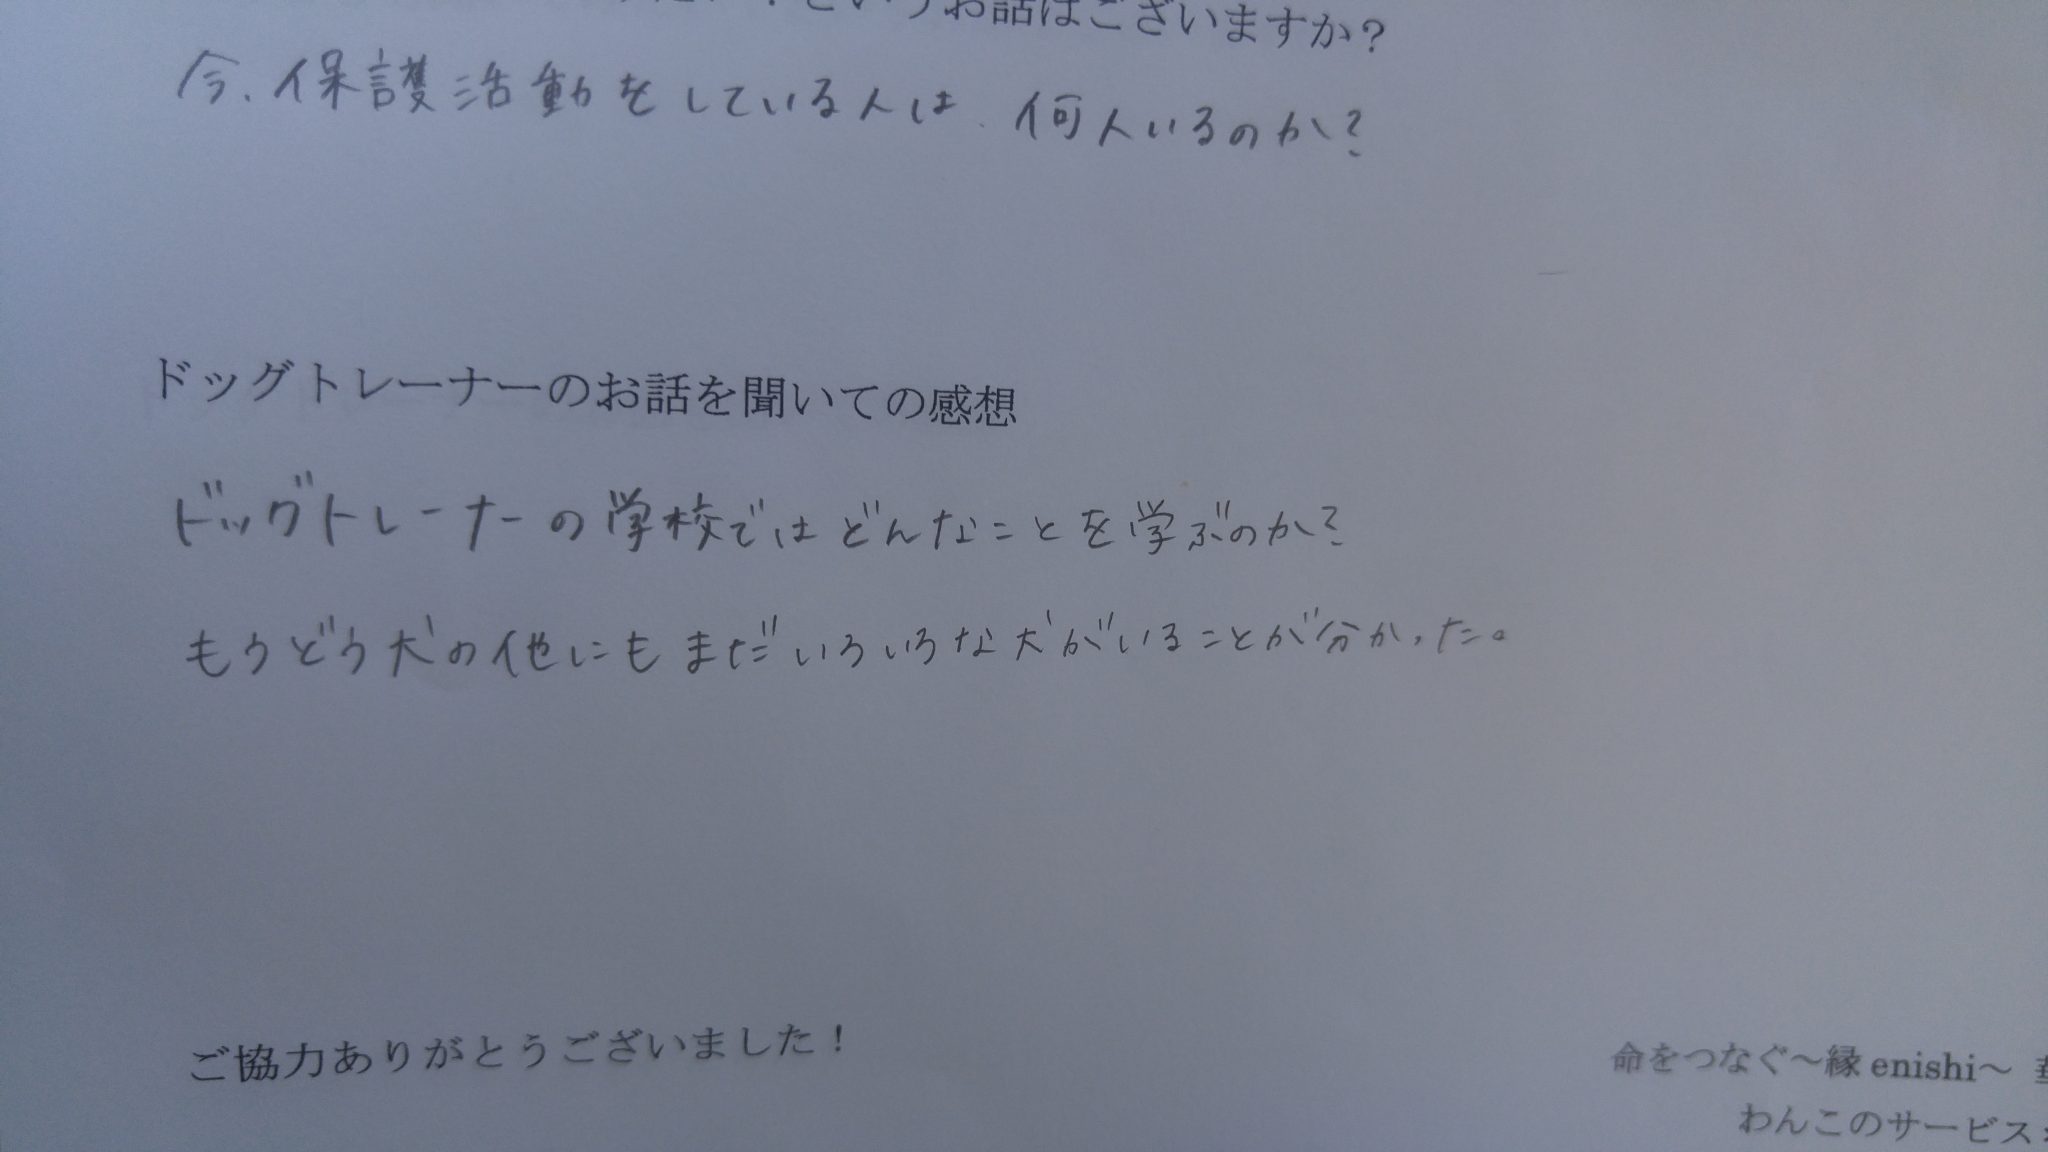 というお話はございますか？
今、保護活動をしている人は、何人いるのか？
ドッグトレーナーのお話を聞いての感想
ドッグトレーナーの学校ではどんなことを学ぶのか？
もうどう犬の他にもまだいろいろな犬がいることが分かった。
ご協力ありがとうございました！
命をつなぐ～縁enishi～
わんこのサービス